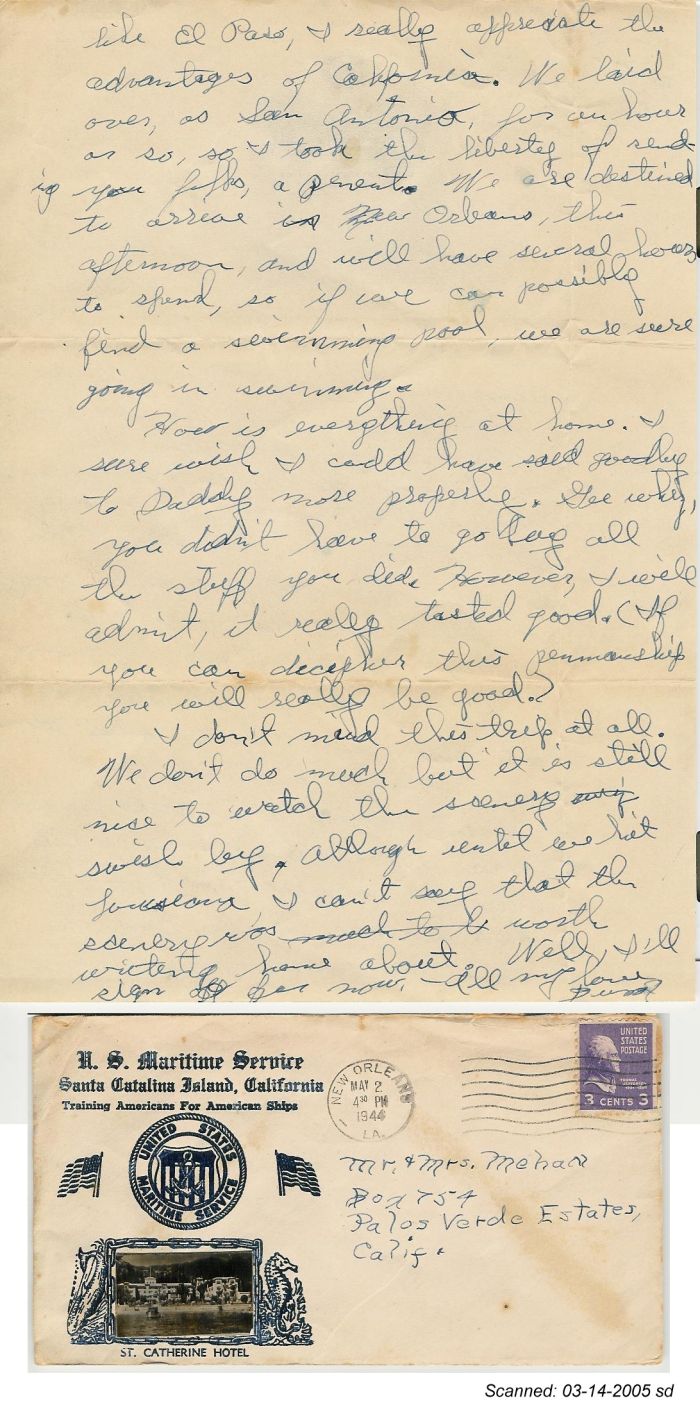 like El Paso, I really appreciate the
advantages of California. We laid
over, as San Antonio, for an hour
or so, so I took the liberty of send-
ig you folks, a present. We are destined
to arrive in New Orleans, this
afternoon, and will have several hours
to spend, so if we can possibly
find a swimming pool, we are sure
going in swimming.
How is everything at home. I
sure wish I could have said goodby
to Daddy more properly. Gee why,
you didn't have to go buy all
the stuff you did. However, I will
admit, it really tasted good. (If
you can decipher this penmanship
you will really be good.)
I don't mind this trip at all.
We don't do much but it is still
nice to watch the scenery
swish by, although until we hit
Louisiana I can't say that the
scenery was much to b worth
writing home about. Well, I'll
sign for now, - All my love
U. S. Maritime Service
Santa Catalina Island, California
Training Americans For American Ships
UNITED STATES
MARITIME SERVICE
ST. CATHERINE HOTEL
NEW ORLEANS
MAY 2
4 30 PM
1944
LA.
UNITED
STATES
POSTAGE
THOMAS
JEFFERSON
3 CENTS 3
Mr. & Mrs. Mehan
Box 754
Palos Verde Estates,
Calif.
Scanned: 03-14-2005 sd